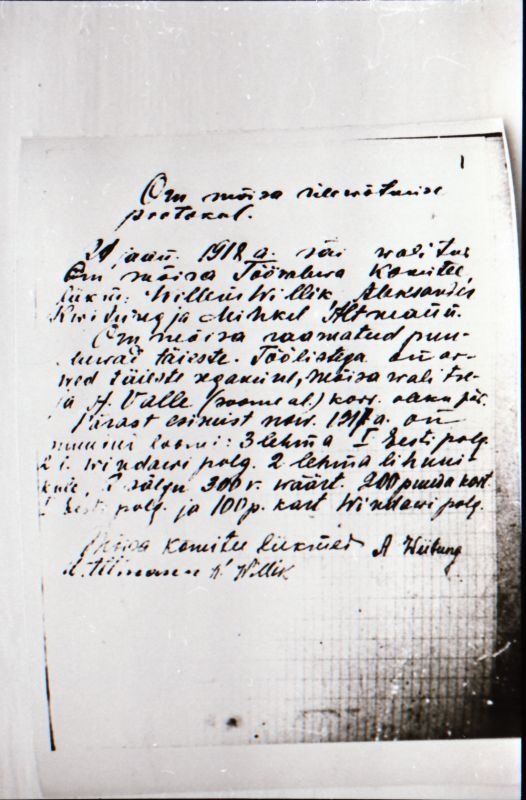 1
Om mõisa ülewõtmise
protokol.
21 jaan. 1918 a. sai walitus
Om mõisa Töörahwa Komitee
liikm: Willem Willik, Aleksander
ja Mihkel Altmann.
Om mõisa raamatud puu-
duwad täieste. Töölistega on ar-
wed täieste segamine, mõisa walitse-
ja H. Valle (soomeal.) korr. olema pär.
Pärast esimist now. 1917 a. on
müünü loomi: 3 lehma I Eesti polg.
2 i. Windawi polg. 2 lehma lihuni-
kule, 300 r. wäärt. 200 puuda kart
I Eesti polg. ja 100 p. kart Windawi polg.
Mõisa Komitee liikmed A Wiibung
M. Altmann W Willik